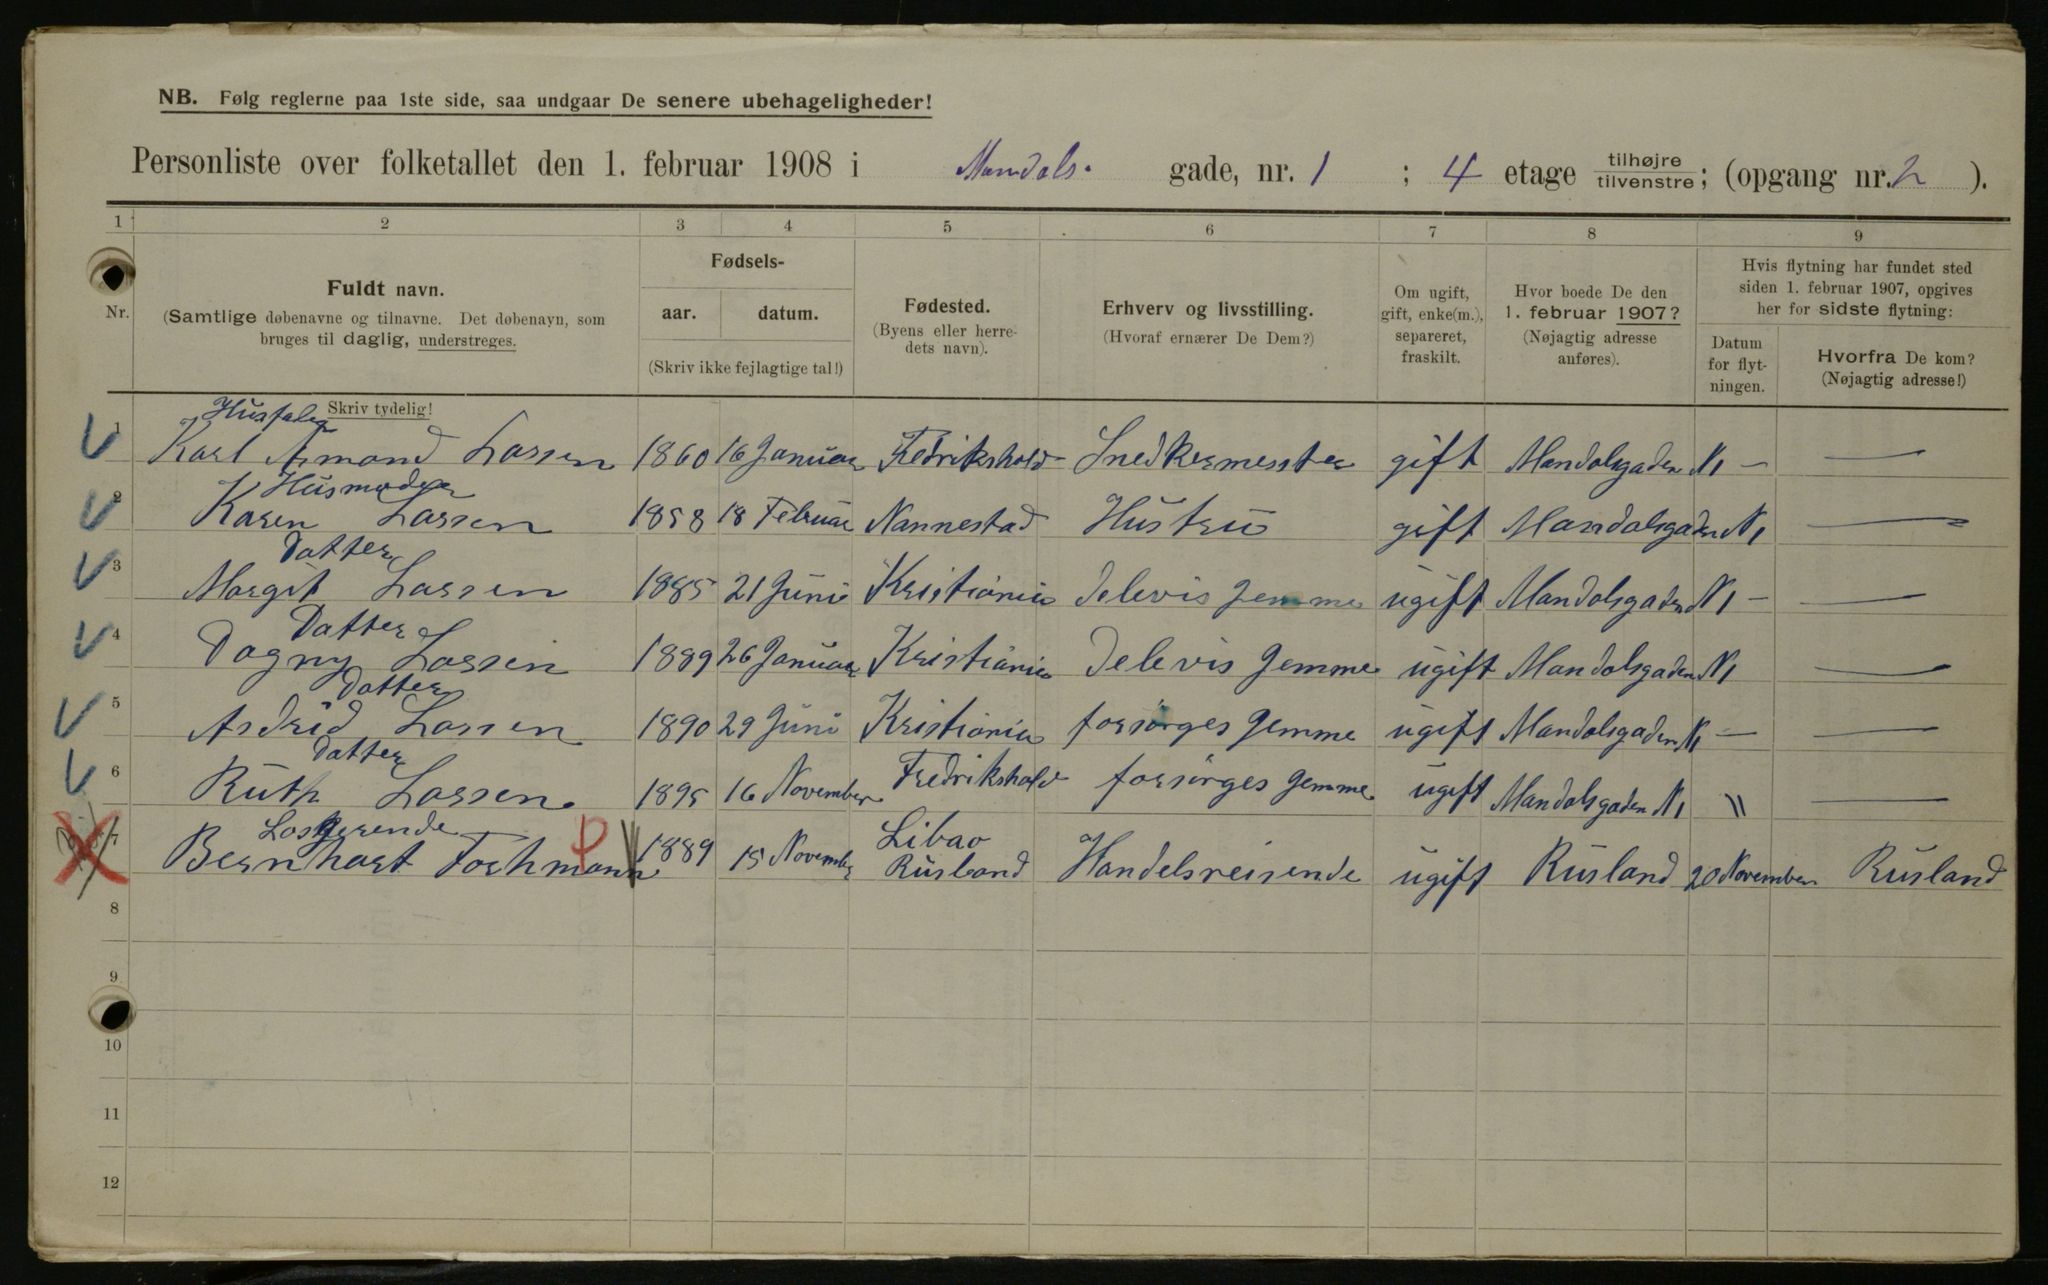 NB. Følg reglerne paa 1ste side, saa undgaar De senere ubehageligheder!
Personliste over folketallet den 1. februar 1908 i Mandals. gade, nr. 1 ; 4 etage tilhøjre / tilvenstre; (opgang nr. 2 ).
1 2 3 4 5 6 7 8 9
Nr.
Fuldt navn.
(Samtlige døbenavne og tilnavne. Det døbenavn, som
bruges til daglig, understreges.
Skriv tydelig!
Fødsels-
aar. datum.
(Skriv ikke fejlagtige tal!)
Fødested.
(Byens eller herre-
dets navn).
Erhverv og livsstilling.
(Hvoraf ernærer De Dem?)
Om ugift,
gift, enke(m.),
separeret,
fraskilt.
Hvor boede De den
1. februar 1907?
(Nøjagtig adresse
anføres).
Hvis flytning har fundet sted
siden 1. februar 1907, opgives
her for sidste flytning:
Datum
for flyt-
ningen.
Hvorfra De kom?
(Nøjagtig adresse!)
Husfader
1 Karl Armand Larsen 1860 16 Januar Fredrikshald Snedkermesster gift Mandalsgaden N1 — —
Husmoder
2 Karen Larsen 1858 18 Februar Nannestad Hustru gift Mandalsgaden N1 —
Datter
3 Margit Larsen 1885 21 Juni Kristiania delevis Jemme ugift Mandalsgaden N1 — —
Datter
4 Dagny Larsen 1889 26 Januar Kristiania delevis Jemme ugift Mandalsgaden N1 —
Datter
5 Astrid Larsen 1890 29 Juni Kristiania forsørges Jemme ugift Mandalsgaden N1 — —
Datter
6 Ruth Larsen. 1895 16 November Fredrikshald forsørges Jemme ugift Mandalsgaden N1 " —
Losjerende
7 Bernhart Forhmann 1889 15 November Libao Rusland Handelsreisende ugift Rusland 20 November Rusland
8
9
10
11
12